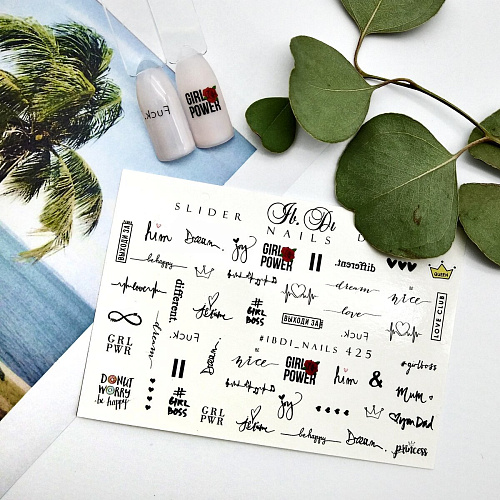 Fuck.
GIRL
POWER
SLIDER Ib. Di
NAILS D
ВЫХОДИ ЗА
him
Dream.
Joy
GIRL
POWER
different.
QUEEN
be happy
love
different.
dream
nice
LOVE CLUB
Je t'aime
#
GIRL
BOSS
ВЫХОДИ ЗА
love
GRL
PWR
dream
Fuck.
Dream.
#IBDI_NAILS 425
nice
GIRL
POWER
him
&
#girlboss
DONUT
WORRY
be happy
#
GIRL
BOSS
Joy
Mum
GRL
PWR
Je t'aime
be happy
Dream.
you Dad
princess